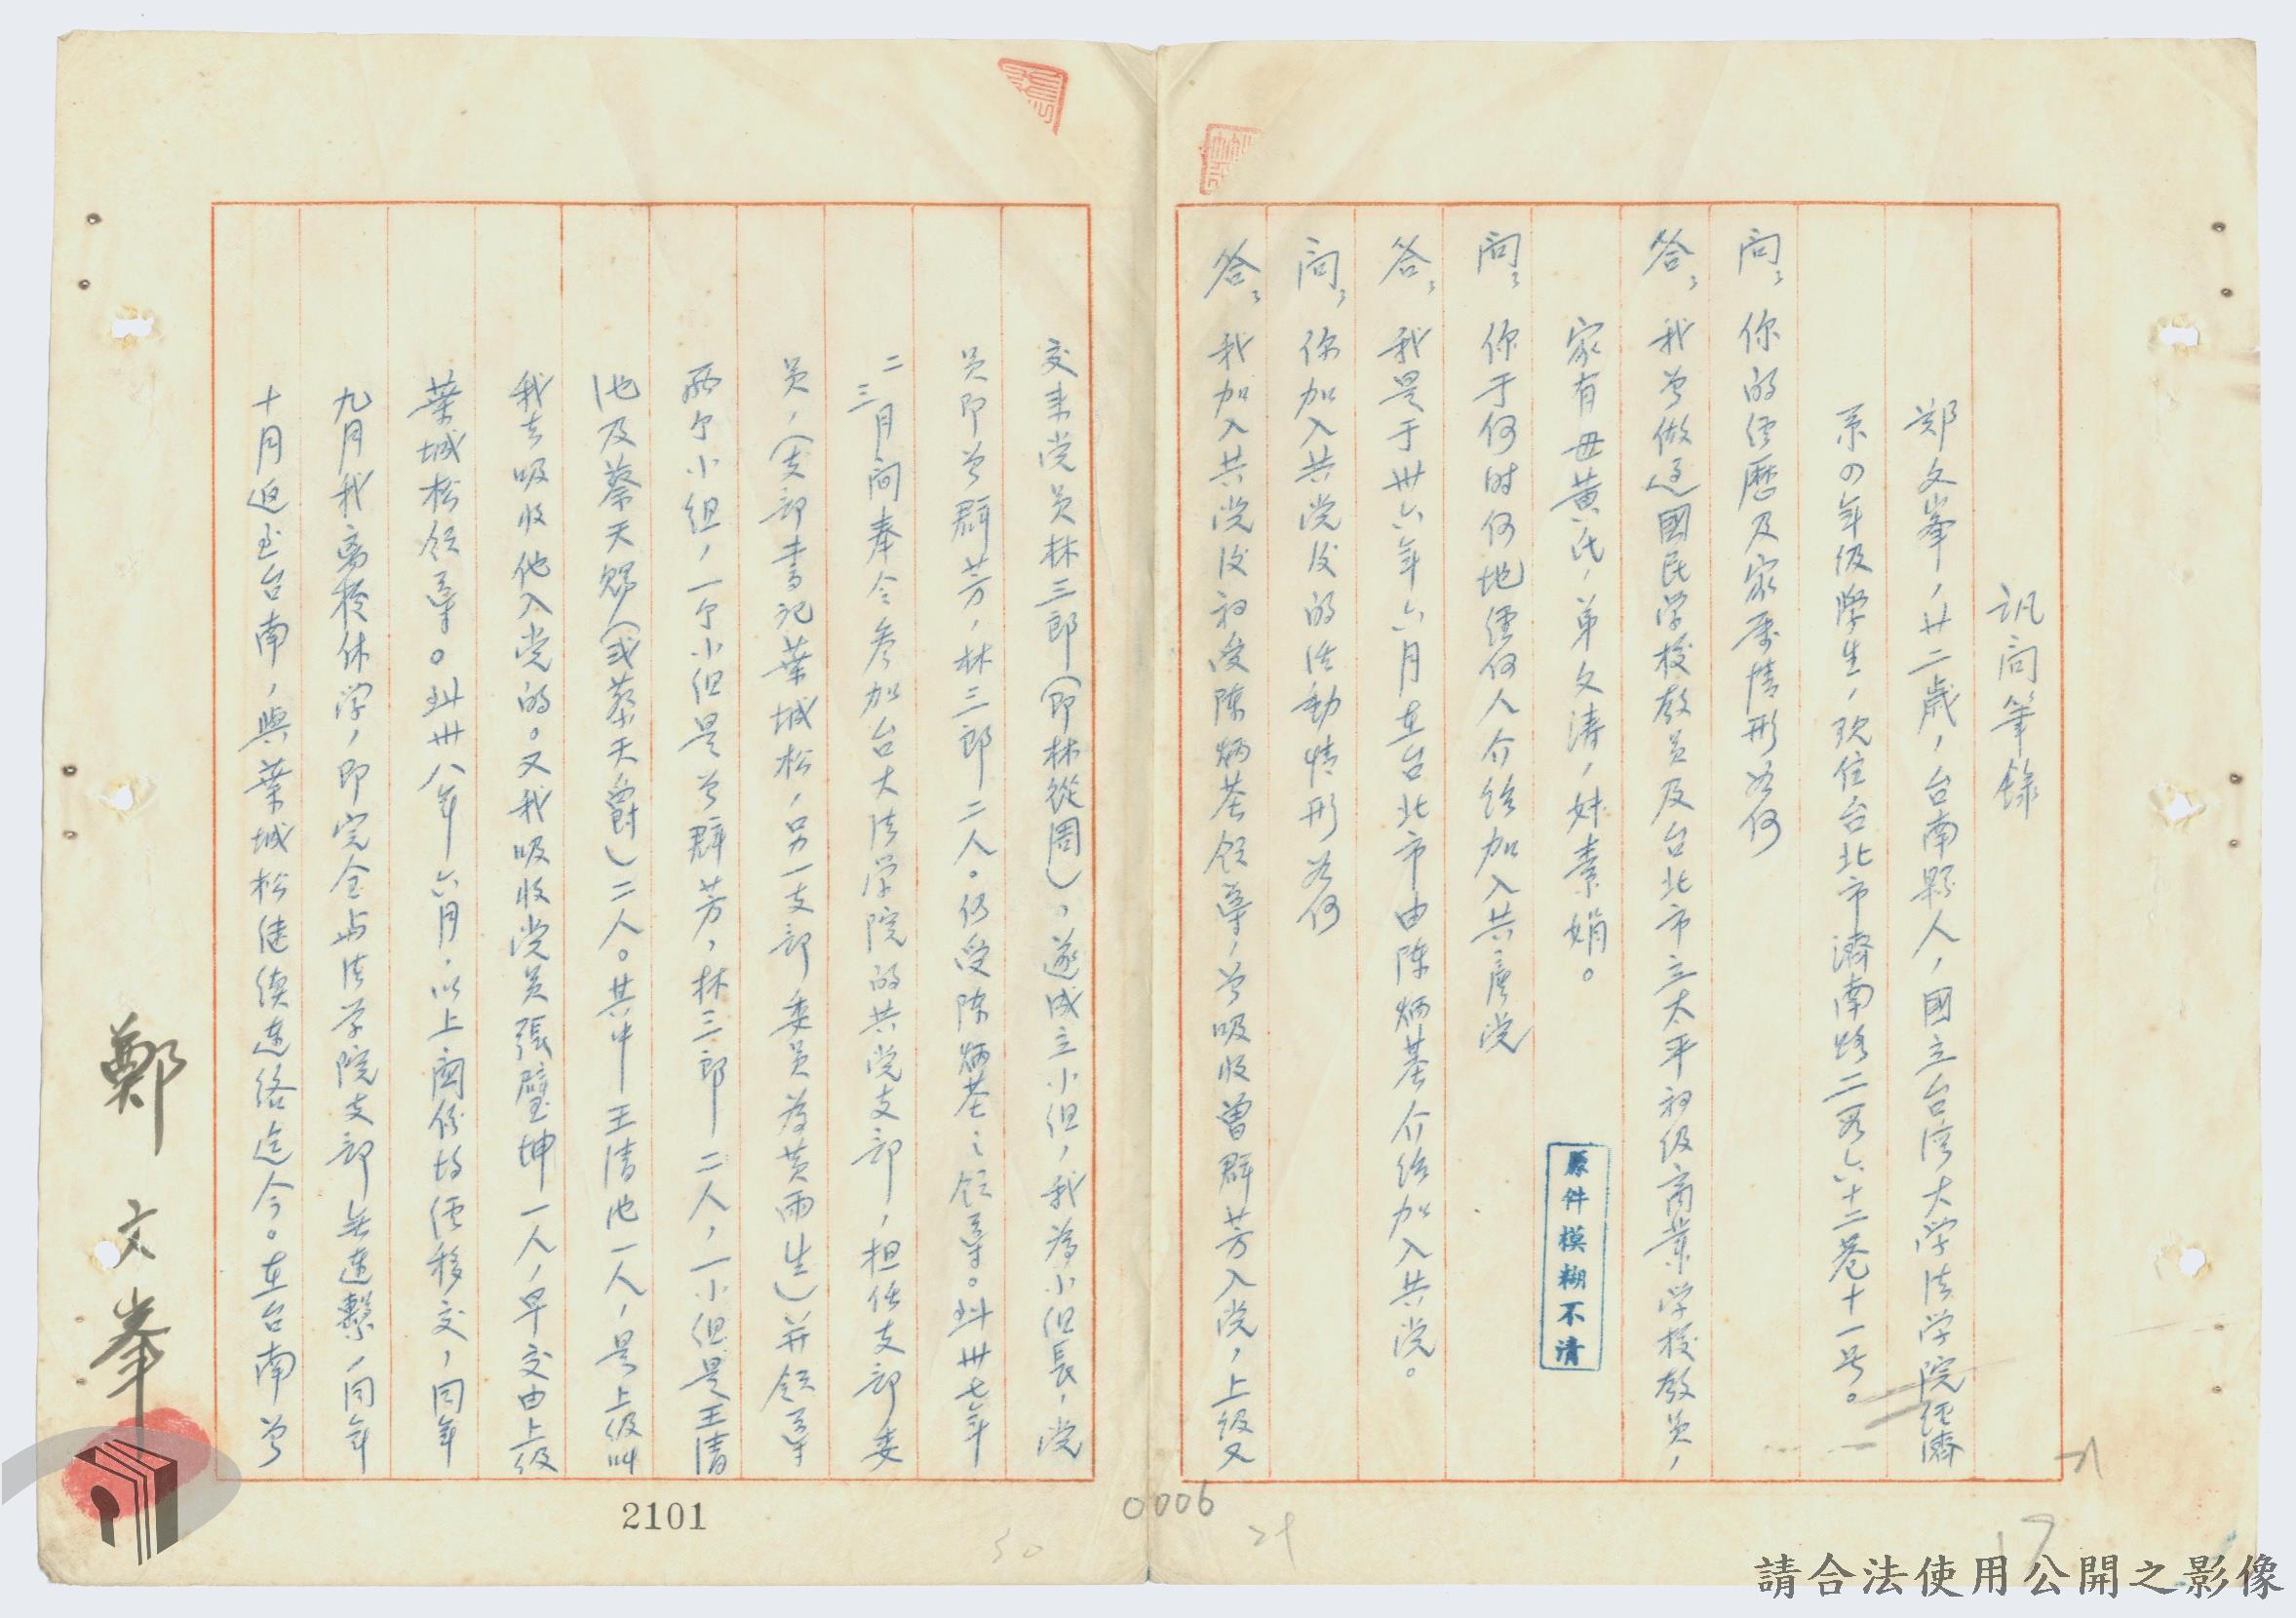 訊问筆錄
鄭文峯，廿二歲，台南縣人，國立台湾大学法学院經濟
系四年级學生，現住台北市濟南路二段六十二巷十一号。
问：你的经歷及家庭情形如何
答：我曾做过國民学校教员及台北市立太平初级商業学校教员，
家有母黄氏，弟文濤，妹素娟。
问：你于何时何地经何人介绍加入共產党
答：我是于卅六年六月在台北市由陈炳基介绍加入共党。
问：你加入共党后的活動情形如何
答：我加入共党后初受陈炳基领導，曾吸收曾群芳入党，上级又
交来党员林三郎（即林從周），遂成立小组，我為小组長，党
员即曾群芳，林三郎二人。仍受陈炳基之领導。到卅七年
二三月间奉令参加台大法学院的共党支部，担任支部委
员，（支部書记葉城松，另一支部委员為黄雨生）并领導
两个小组，一个小组是曾群芳，林三郎二人，一小组是王清
池及蔡天賜（或蔡天爵）二人。其中王清池一人，是上级叫
我去吸收他入党的。又我吸收党员張璧坤一人，早交由上级
葉城松领導。到卅八年六月，以上関係均经移交，同年
九月我离校休学，即完全与法学院支部無連繫，同年
十月返至台南，與葉城松继续連络迄今。在台南曾
鄭文峯
原件模糊不清
2101
0006
21
30
17
請合法使用公開之影像